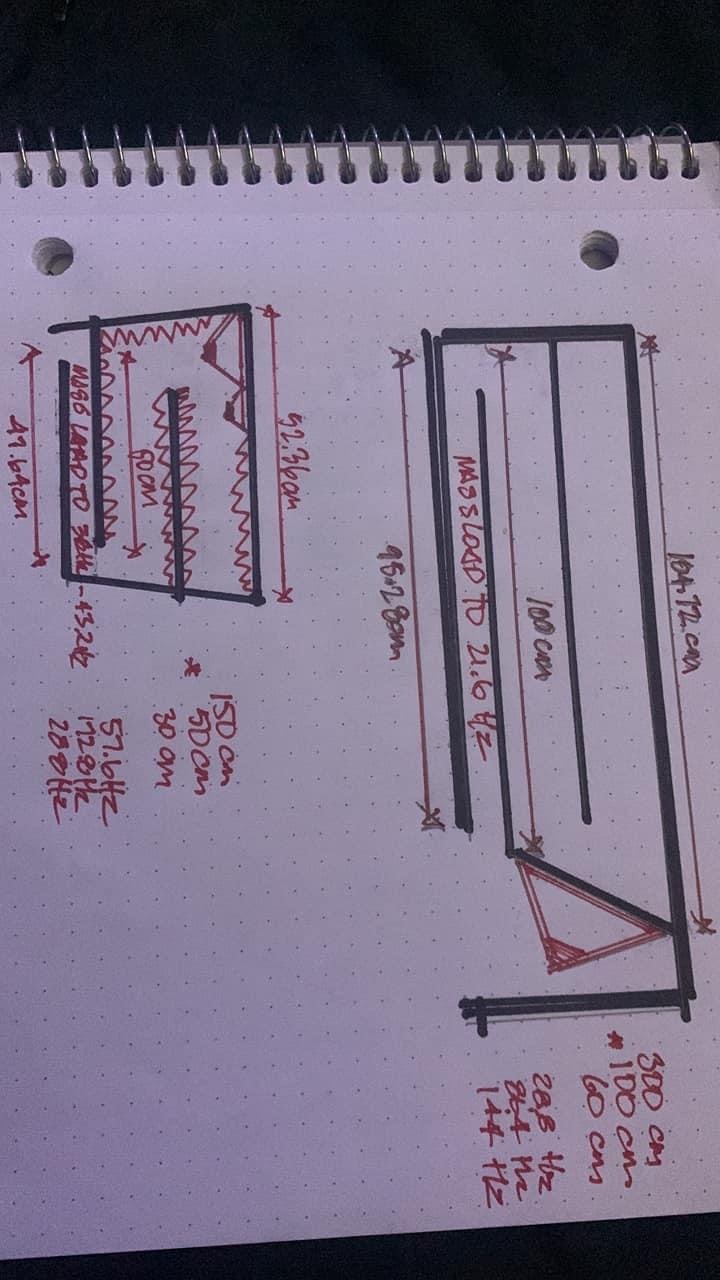 104.72 cm
100 cm
MASS LOAD TO 21.6 Hz
95.28cm
300 cm
* 100 cm
60 cm
28.8 Hz
86.4 Hz
144 Hz
52.36cm
50cm
MASS LOAD TO 36Hz-43.2Hz
47.64cm
150 cm
* 50 cm
30 cm
57.6Hz
172.8Hz
288Hz